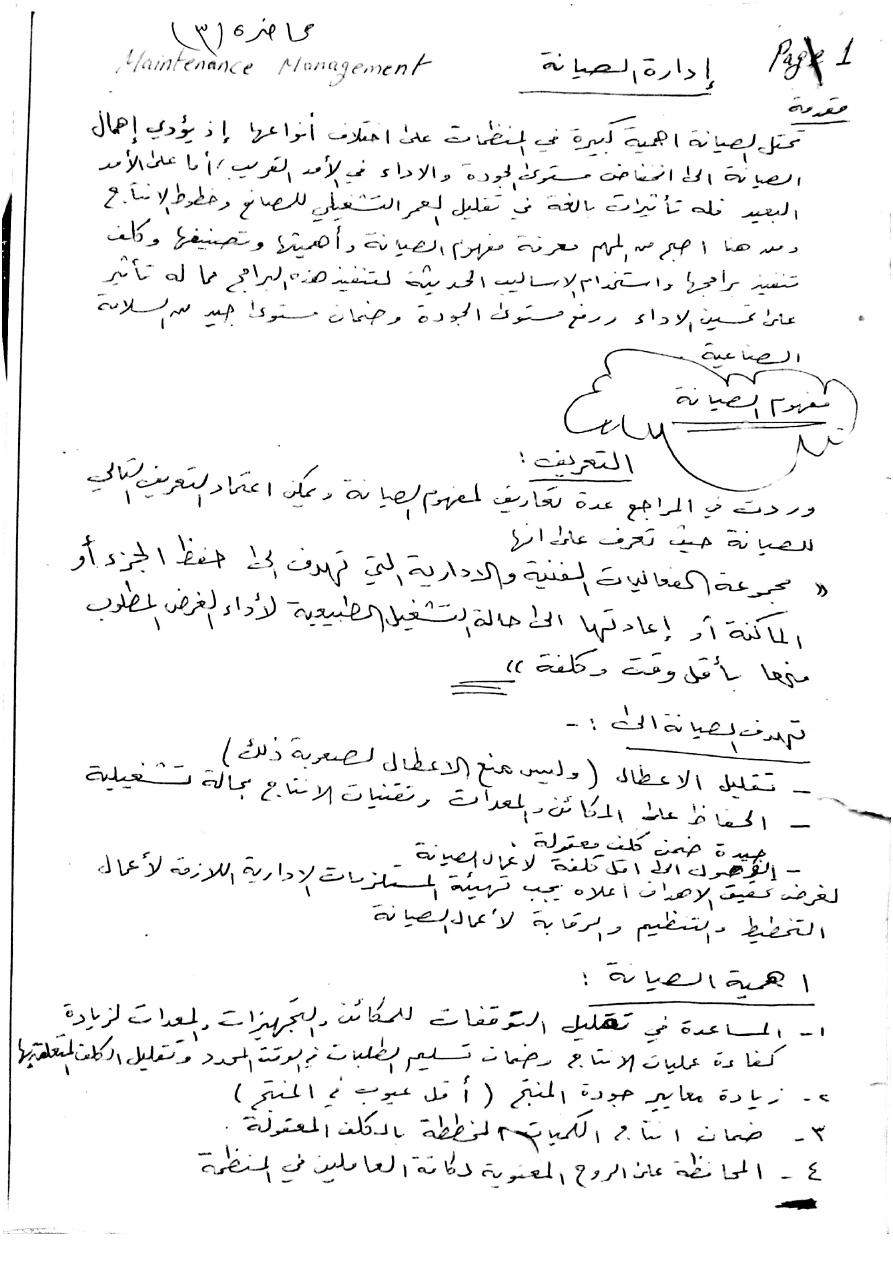 محاضرة (٣)
Page 1
إدارة الصيانة
Maintenance Management
مقدمة
تحتل الصيانة اهمية كبيرة في المنظمات على اختلاف أنواعها إذ يؤدي إهمال
الصيانة الى انخفاض مستوى الجودة والاداء في الأمد القريب، أما على الأمد
البعيد فله تأثيرات بالغة في تقليل العمر التشغيلي للمصانع وخطوط الانتاج
ومن هنا اصبح من المهم معرفة مفهوم الصيانة وأهميتها وتصنيفها وكلف
تنفيذ برامجها واستخدام الاساليب الحديثة لتنفيذ هذه البرامج مما له تأثير
على تحسين الاداء ورفع مستوى الجودة وضمان مستوى جيد من السلامة
الصناعية
مفهوم الصيانة
التعريف :
وردت في المراجع عدة تعاريف لمفهوم الصيانة ويمكن اعتماد التعريف التالي
للصيانة حيث تعرف على انها
« مجموعة الفعاليات الفنية والادارية التي تهدف الى حفظ الجزء أو
الماكنة أو إعادتها الى حالة التشغيل الطبيعية لأداء الغرض المطلوب
منها بأقل وقت وكلفة »
تهدف الصيانة الى :-
- تقليل الاعطال ( وليس منع الاعطال لصعوبة ذلك )
- الحفاظ على المكائن والمعدات وتقنيات الانتاج بحالة تشغيلية
جيدة ضمن كلف معقولة
- الوصول الى اقل كلفة لأعمال الصيانة
لغرض تحقيق الاهداف اعلاه يجب تهيئة المستلزمات الادارية اللازمة لأعمال
التخطيط والتنظيم والرقابة لأعمال الصيانة
اهمية الصيانة :
١- المساعدة في تقليل التوقفات للمكائن والتجهيزات والمعدات لزيادة
كفاءة عمليات الانتاج وضمان تسليم الطلبات في الوقت المحدد وتقليل الكلف المتعلقة بها
٢- زيادة معايير جودة المنتج ( أقل عيوب في المنتج )
٣- ضمان انتاج الكميات المخططة بالكلف المعقولة .
٤- المحافظة على الروح المعنوية لكافة العاملين في المنظمة